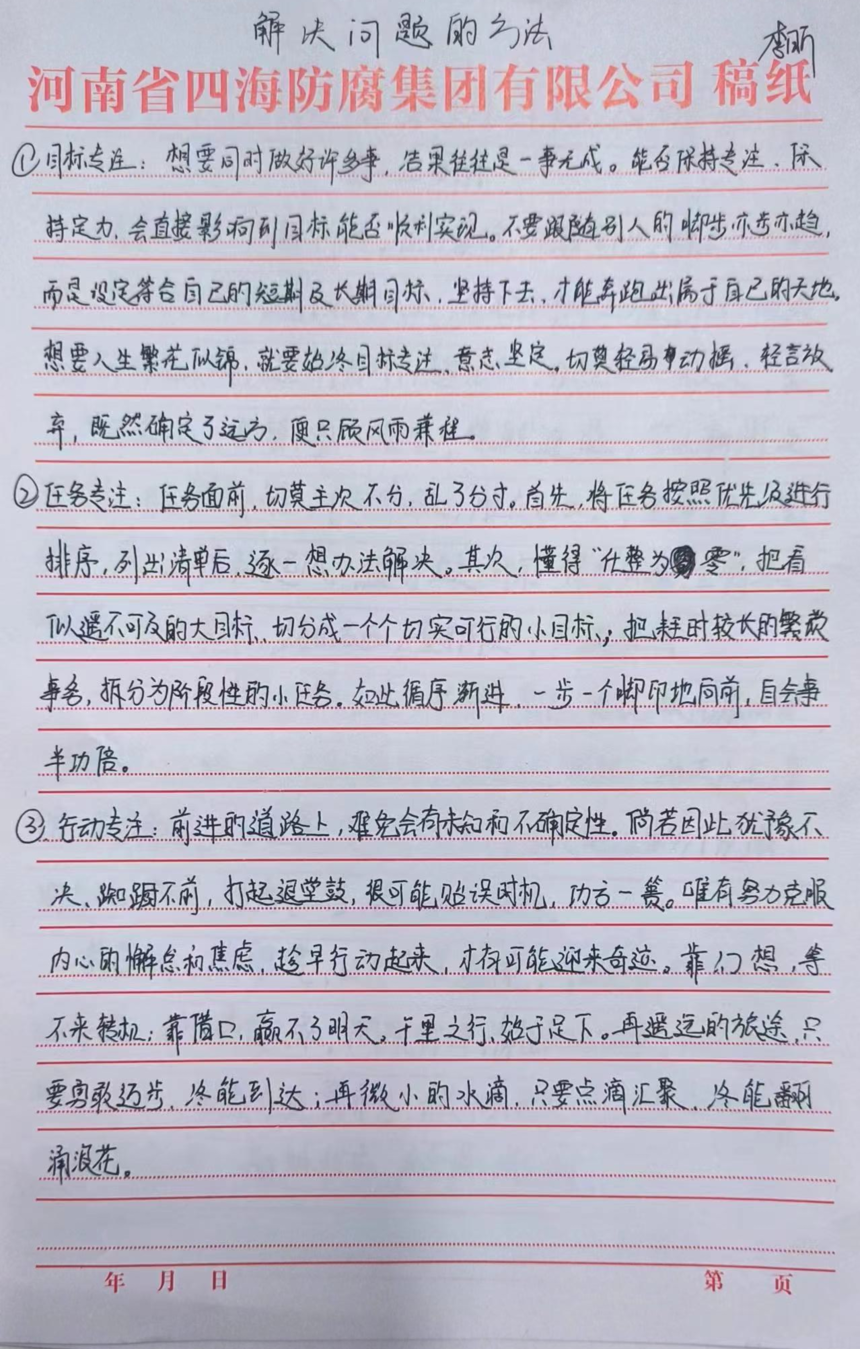 解决问题的方法
李丽
河南省四海防腐集团有限公司 稿纸
①目标专注：想要同时做好许多事，结果往往是一事无成。能否保持专注、保
持定力，会直接影响到目标能否顺利实现。不要跟随别人的脚步亦步亦趋，
而是设定符合自己的短期及长期目标，坚持下去，才能奔跑出属于自己的天地。
想要人生繁花似锦，就要始终目标专注、意志坚定。切莫轻易动摇、轻言放
弃，既然确定了远方，便只顾风雨兼程。
②任务专注：任务面前，切莫主次不分，乱了分寸。首先，将任务按照优先级进行
排序，列出清单后，逐一想办法解决。其次，懂得“化整为零”，把看
似遥不可及的大目标、切分成一个个切实可行的小目标；把耗时较长的繁琐
事务，拆分为阶段性的小任务。如此循序渐进，一步一个脚印地向前，自会事
半功倍。
③行动专注：前进的道路上，难免会有未知和不确定性。倘若因此犹豫不
决、踟蹰不前，打起退堂鼓，很可能贻误时机，功亏一篑。唯有努力克服
内心的懈怠和焦虑，趁早行动起来，才有可能迎来奇迹。靠幻想，等
不来转机；靠借口，赢不了明天。千里之行，始于足下。再遥远的旅途，只
要勇敢迈步，终能到达；再微小的水滴，只要点滴汇聚，终能翻
涌浪花。
年 月 日
第 页